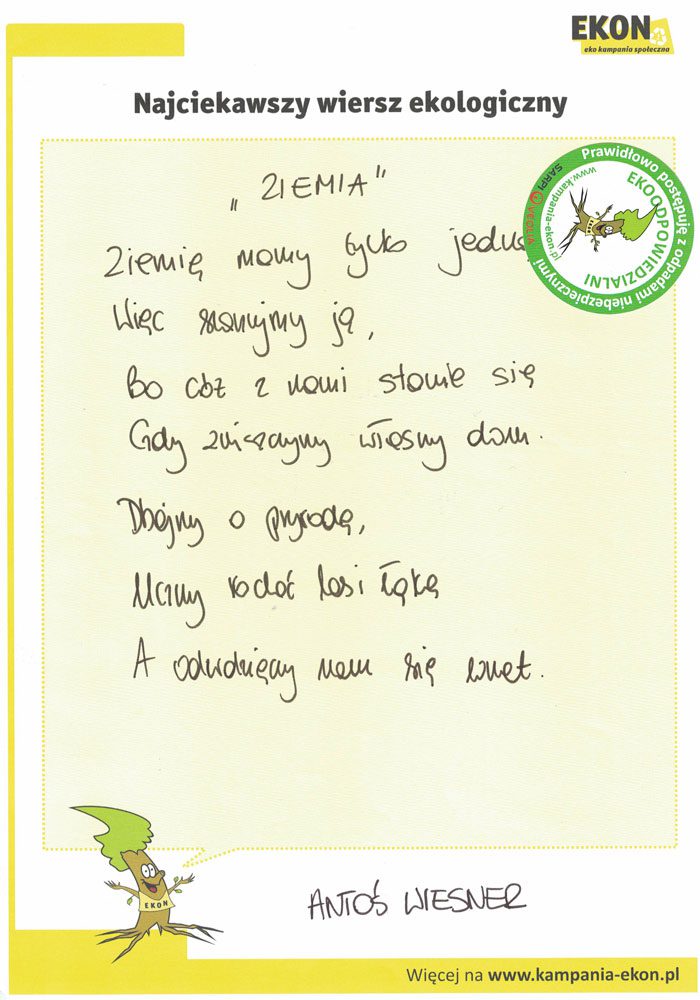 EKON
eko kampania społeczna
Najciekawszy wiersz ekologiczny
„ZIEMIA”
Ziemię mamy tylko
Więc szanujmy ją,
Bo cóż z nami stanie się
Gdy zniszczymy własny dom.
Dbajmy o przyrodę,
las i łąkę
A odwdzięczy nam się wnet.
Prawidłowo postępuję z odpadami niebezpiecznymi
SARPI VEOLIA
www.kampania-ekon.pl
EKOODPOWIEDZIALNI
EKON
ANTOŚ WIESNER
Więcej na www.kampania-ekon.pl